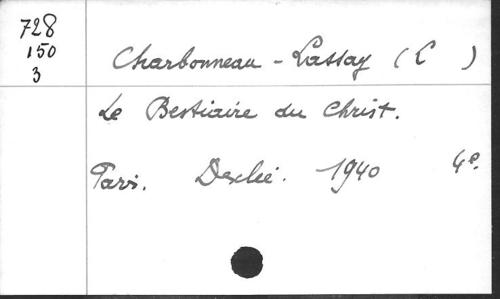 728
150
3
Charbonneau-Lassay (L )
Le Bestiaire du Christ.
Paris. Desclée. 1940 4°.